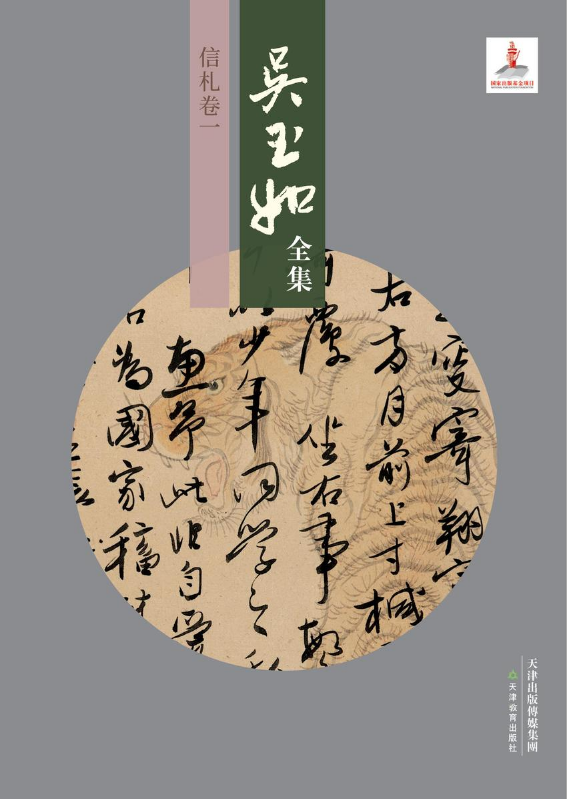 吴玉如
全集
信札卷一
国家出版基金项目
右方月前上寸椷
坐右事
少年同学之
画第此非自爱
为國家稿
天津出版傳媒集團
天津教育出版社